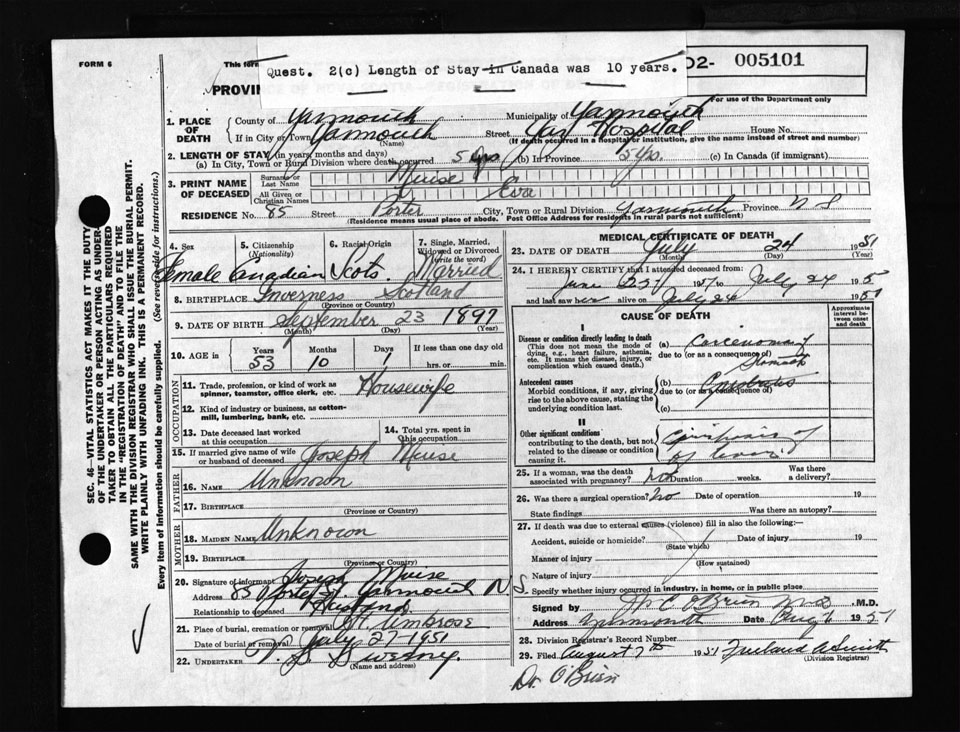 FORM 6
This form
Quest. 2(c) Length of Stay in Canada was 10 years.
02- 005101
PROVIN
For use of the Department only
1. PLACE OF DEATH
County of Yarmouth Municipality of Yarmouth
If in City or Town Yarmouth (Name) Street Yar Hospital House No.
(If death occurred in a hospital or institution, give the name instead of street and number)
2. LENGTH OF STAY (in years months and days)
(a) In City, Town or Rural Division where death occurred 5 yrs (b) In Province 5 yrs. (c) In Canada (if immigrant)
3. PRINT NAME OF DECEASED
Surname or Last Name Muise
All Given or Christian Names Eva
RESIDENCE No. 85 Street Porter City, Town or Rural Division Yarmouth Province N S
(Residence means usual place of abode. Post Office Address for residents in rural parts not sufficient)
4. Sex Female
5. Citizenship (Nationality) Canadian
6. Racial Origin Scots.
7. Single, Married, Widowed or Divorced (write the word) Married
8. BIRTHPLACE Inverness Scotland
(Province or Country)
9. DATE OF BIRTH September 23 1897
(Month) (Day) (Year)
10. AGE in Years 53 Months 10 Days 1 If less than one day old hrs. or min.
OCCUPATION
11. Trade, profession, or kind of work as spinner, teamster, office clerk, etc. Housewife
12. Kind of industry or business, as cotton-mill, lumbering, bank, etc.
13. Date deceased last worked at this occupation
14. Total yrs. spent in this occupation
15. If married give name of wife or husband of deceased Joseph Muise
FATHER
16. Name Unknown
17. Birthplace
(Province or Country)
MOTHER
18. Maiden Name Unknown
19. Birthplace
(Province or Country)
20. Signature of informant Joseph Muise
Address 85 Porter St. Yarmouth N S
Relationship to deceased Husband
21. Place of burial, cremation or removal St. Ambrose
Date of burial or removal July 27 1951
22. UNDERTAKER V. S. Sweeny.
(Name and address)
MEDICAL CERTIFICATE OF DEATH
23. DATE OF DEATH July 24 1951
(Month) (Day) (Year)
24. I HEREBY CERTIFY that I attended deceased from
June 23 1951 to July 24 195
and last saw her alive on July 24 1951
CAUSE OF DEATH
Approximate interval between onset and death
I
Disease or condition directly leading to death
(This does not mean the mode of dying, e.g., heart failure, asthenia, etc. It means the disease, injury, or complication which caused death.)
(a) Carcenoma of Stomach
due to (or as a consequence of)
Antecedent causes
Morbid conditions, if any, giving rise to the above cause, stating the underlying condition last.
(b)
due to (or as a consequence of)
(c)
II
Other significant conditions
contributing to the death, but not related to the disease or condition causing it.
of liver
25. If a woman, was the death associated with pregnancy? No Duration weeks. Was there a delivery?
26. Was there a surgical operation? No Date of operation 19
State findings Was there an autopsy?
27. If death was due to external causes (violence) fill in also the following:—
Accident, suicide or homicide? Date of injury 19
(State which)
Manner of injury
(How sustained)
Nature of injury
Specify whether injury occurred in industry, in home, or in public place
Signed by O'Brien M.D. M.D.
Address Yarmouth Date Aug 1951
28. Division Registrar's Record Number
29. Filed August 7th 1951
(Division Registrar)
Dr. O'Brien
SEC. 46—VITAL STATISTICS ACT MAKES IT THE DUTY
OF THE UNDERTAKER OR PERSON ACTING AS UNDER-
TAKER TO OBTAIN ALL THE PARTICULARS REQUIRED
IN THE "REGISTRATION OF DEATH" AND TO FILE THE
SAME WITH THE DIVISION REGISTRAR WHO SHALL ISSUE THE BURIAL PERMIT.
WRITE PLAINLY WITH UNFADING INK. THIS IS A PERMANENT RECORD.
Every item of information should be carefully supplied. (See reverse side for instructions.)